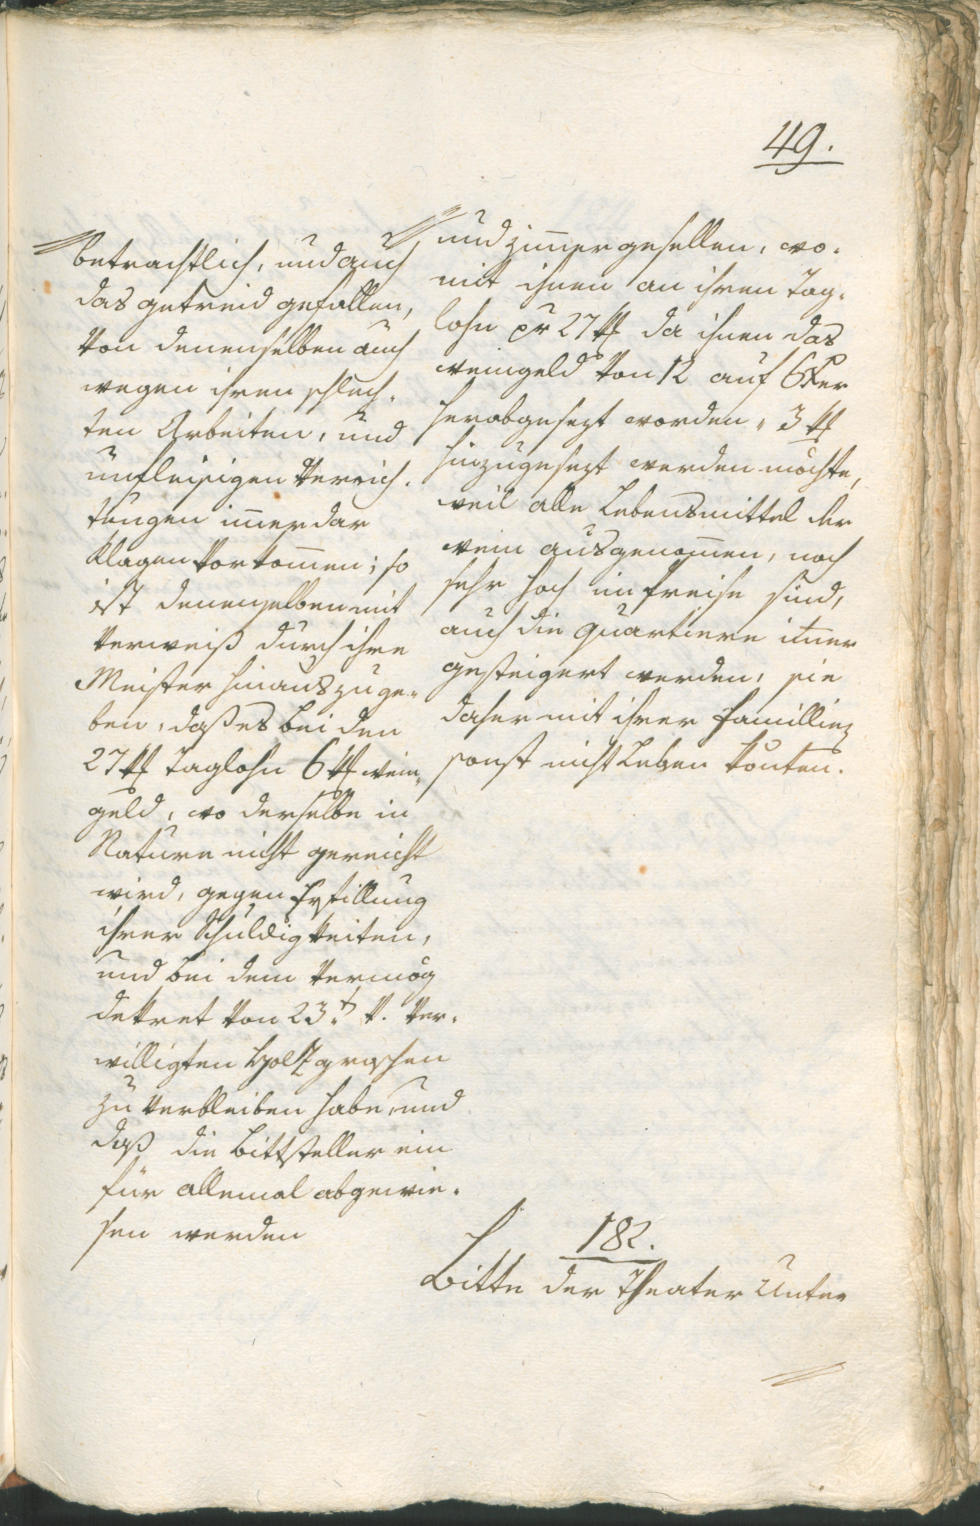 49.
betrachtlich, und auch
das getreid gefallen,
von denenselben auch
wegen ihren schlech-
ten Arbeiten, und
unfleissigen Verrich-
tungen immerdar
Klagen vorkommen; so
ist denenselben mit
Verweiß durch ihre
Meister hinauszuge-
ben, daß es bei den
27 Taglohn 6 wein-
geld, wo derselbe in
Natura nicht gereicht
wird, gegen Erfüllung
ihrer Schuldigkeiten,
und bei dem vermög
dekret von 23t v. ver-
willigten Holzgroschen
zu verbleiben habe, und
daß die Bittsteller ein
für allemal abgewie-
sen werden
und zimmergesellen, wo-
mit ihnen an ihren Tag-
lohn pr 27 da ihnen das
weingeld von 12 auf 6
herabgesezt worden, 3
hinzugesezt werden möchte,
weil alle Lebensmittel der
wein ausgenommen, noch
sehr hoch im Preise sind,
auch die Quartiere immer
gesteigert werden, sie
daher mit ihrer Familie
sonst nicht Leben könten.
182.
Bitte der Theater Unter